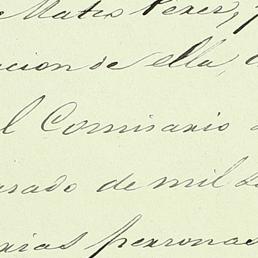 Mateo Perez,
cion de ella,
l Comisario
sado de mil
rias personas